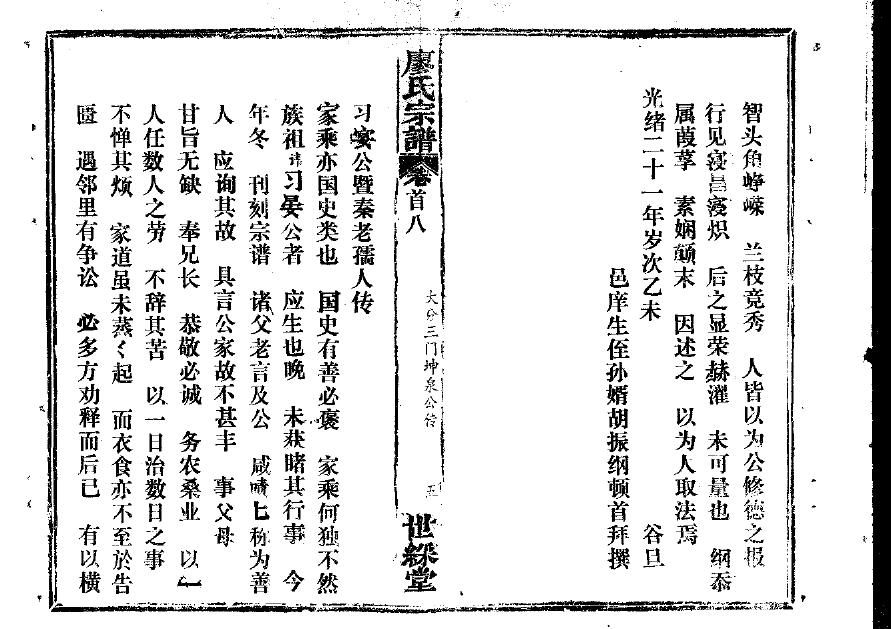 智头角峥嵘 兰枝竞秀 人皆以为公修德之报
行见寖昌寖炽 后之显荣赫濯 未可量也 纲忝
属葭莩 素娴颠末 因述之 以为人取法焉
光绪二十一年岁次乙未 谷旦
邑庠生侄孙婿胡振纲顿首拜撰
廖氏宗譜 卷首八 大分三门坤泉公传 五 世綵堂
习宴公暨秦老孺人传
家乘亦国史类也 国史有善必褒 家乘何独不然
族祖讳习晏公者 应生也晚 未获睹其行事 今
年冬 刊刻宗谱 诸父老言及公 咸啧匕称为善
人 应询其故 具言公家故不甚丰 事父母
甘旨无缺 奉兄长 恭敬必诚 务农桑业 以一
人任数人之劳 不辞其苦 以一日治数日之事
不惮其烦 家道虽未蒸〱起 而衣食亦不至於告
匮 遇邻里有争讼 必多方劝释而后已 有以横